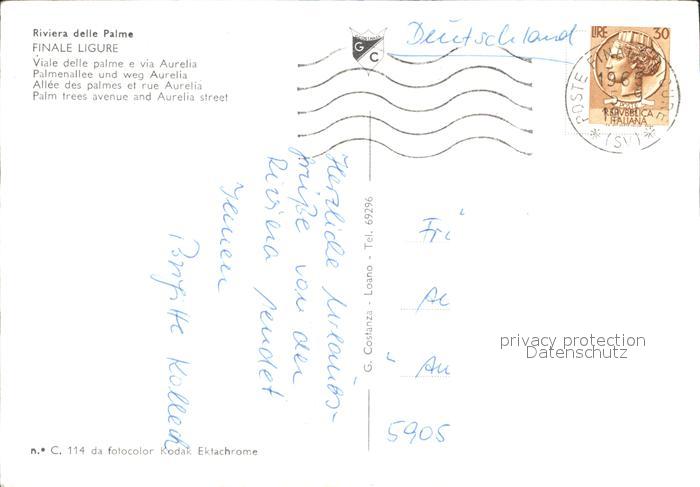 Riviera delle Palme
FINALE LIGURE
Viale delle palme e via Aurelia
Palmenallee und weg Aurelia
Allée des palmes et rue Aurelia
Palm trees avenue and Aurelia street
G C
Deutschland
LIRE 30
POSTE
REPVBBLICA
ITALIANA
POSTE FINALE LIGURE
(SV)
Herzliche Urlaubs-
grüße von der
Riviera sendet
Ihnen
Brigitte
G. Costanza - Loano - Tel. 69296
5905
privacy protection
Datenschutz
n.° C. 114 da fotocolor Kodak Ektachrome